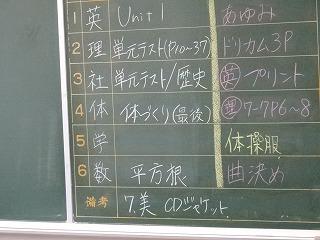 1 英 Unit 1 あゆみ
2 理 単元テスト(P10~37) ドリカム3P
3 社 単元テスト/歴史 英 プリント
4 体 体づくり(最後) 理 7-7P6~8
5 学 体操服
6 数 平方根 曲決め
備考 7.美 CDジャケット